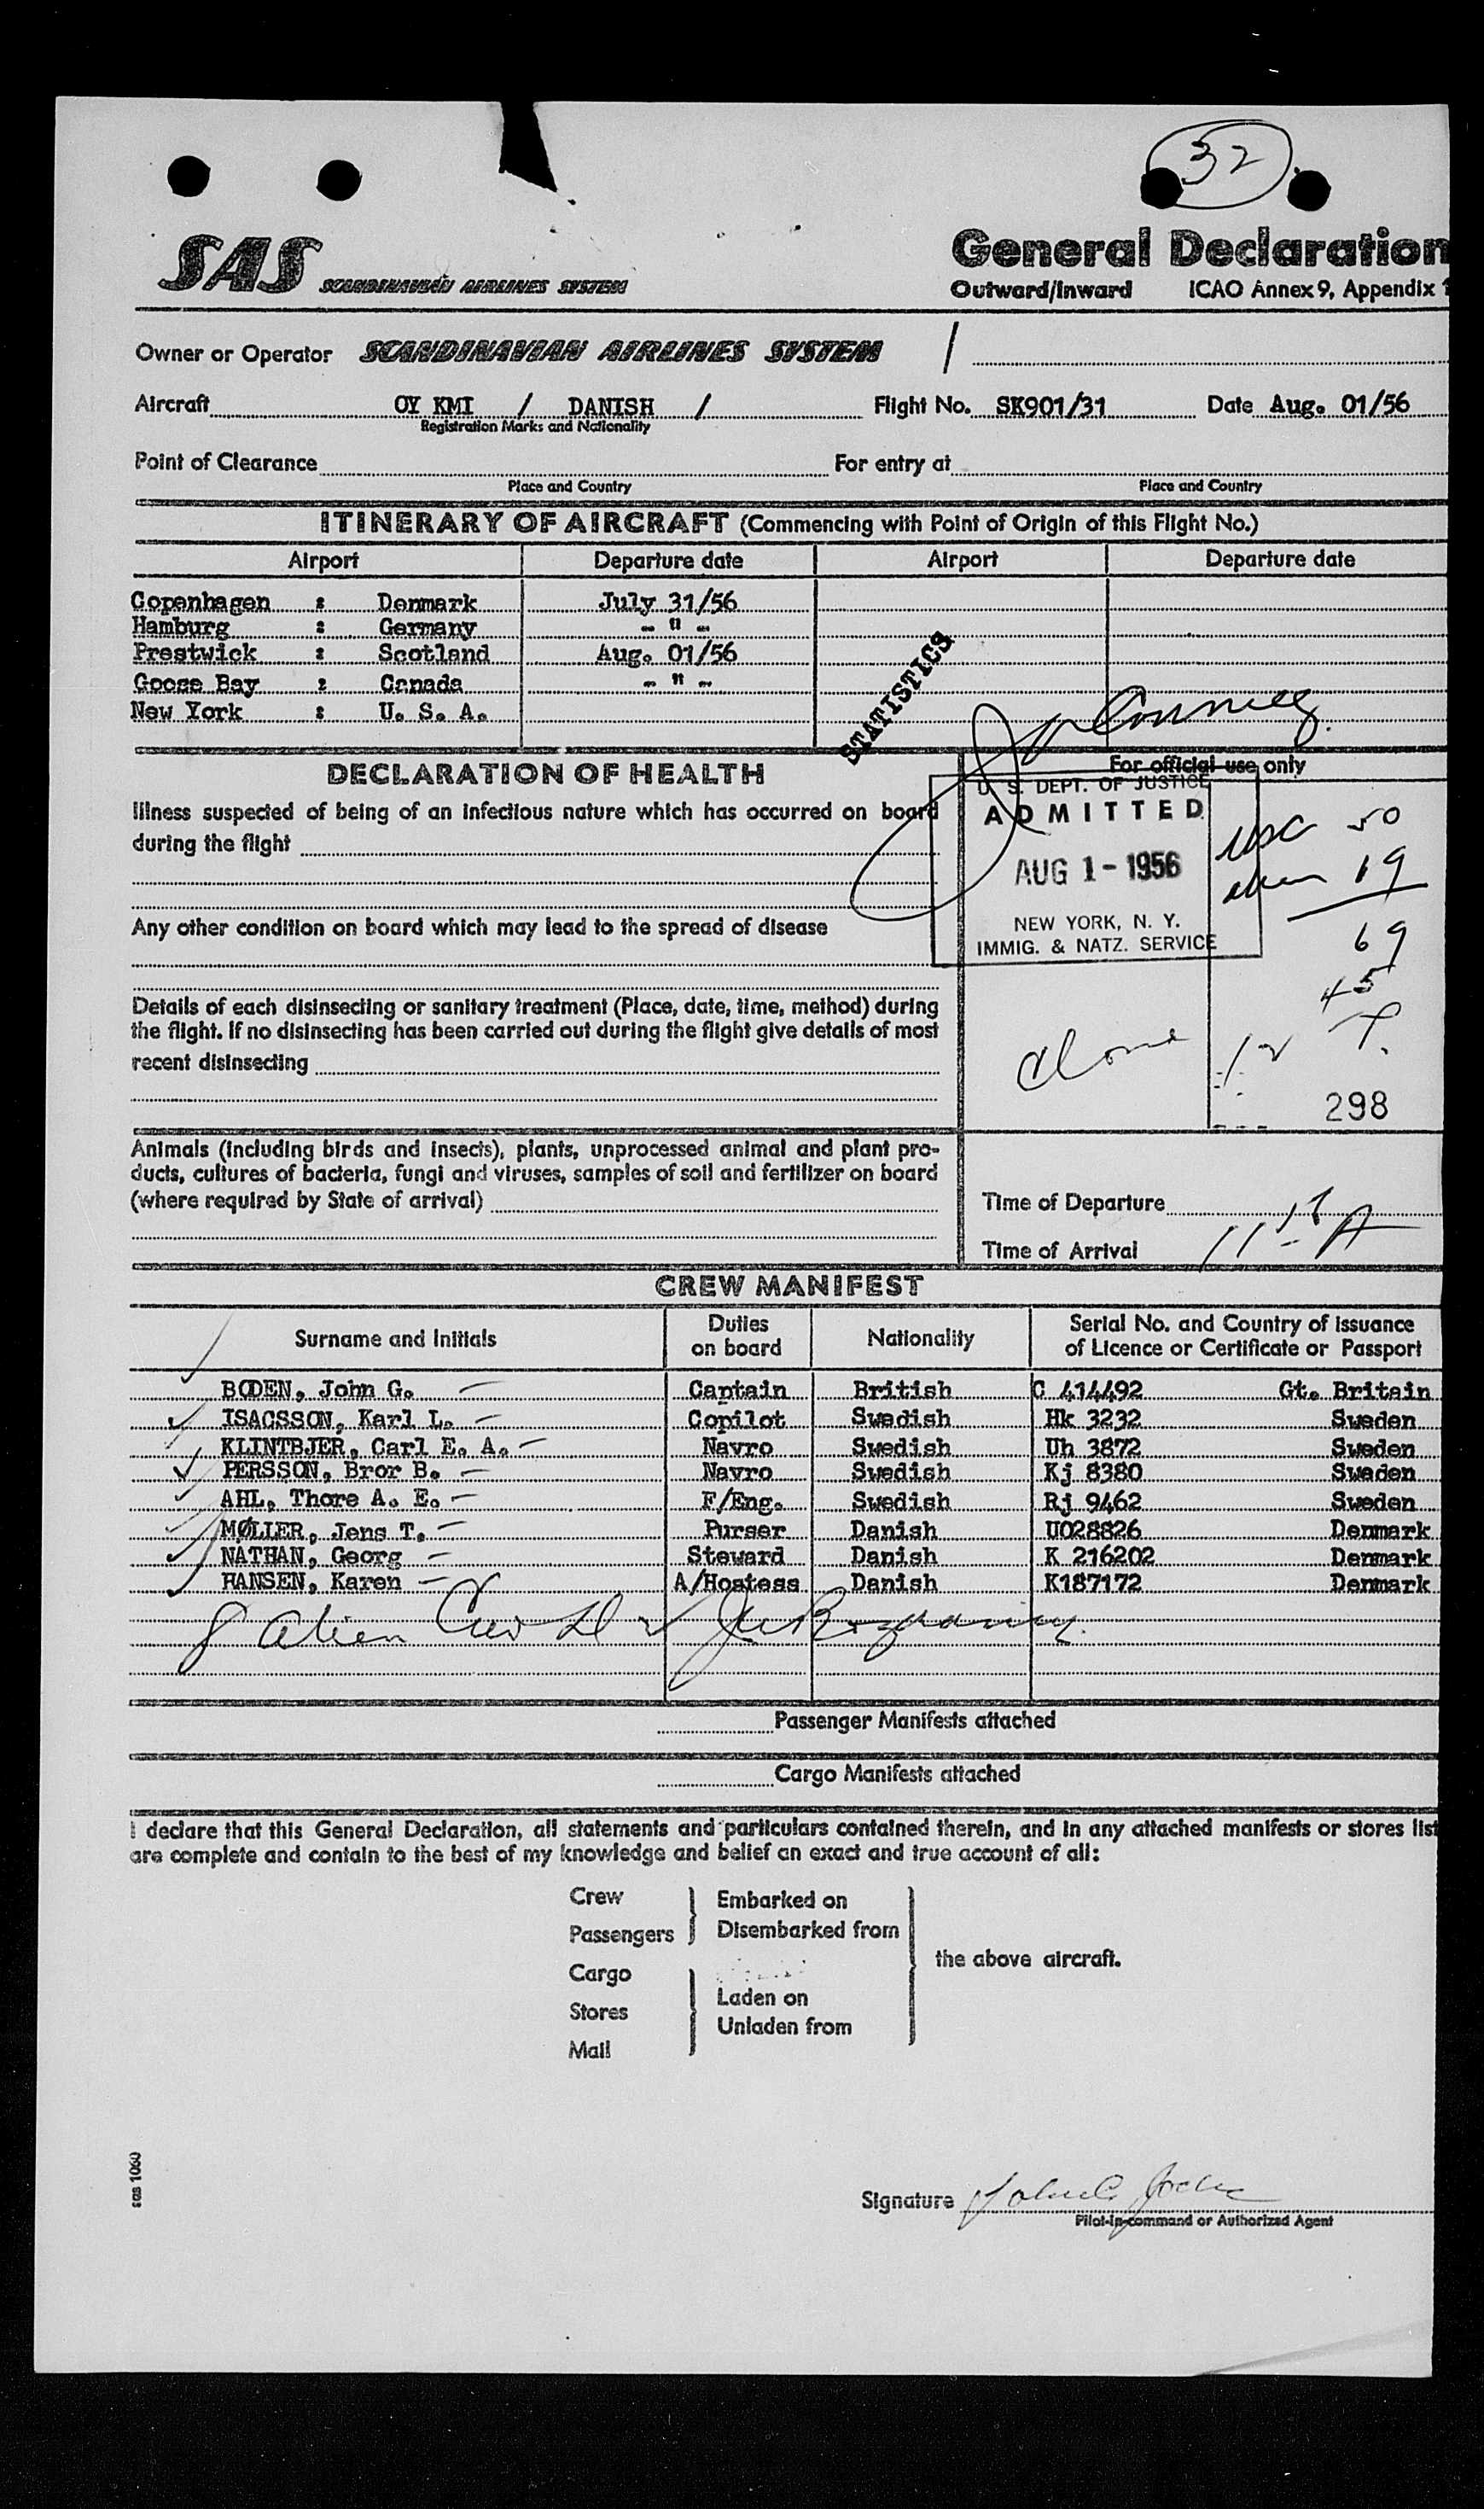 32
SAS SCANDINAVIAN AIRLINES SYSTEM
General Declaration
Outward/Inward ICAO Annex 9, Appendix 1
Owner or Operator SCANDINAVIAN AIRLINES SYSTEM /
Aircraft OY KMI / DANISH / Flight No. SK901/31 Date Aug. 01/56
Registration Marks and Nationality
Point of Clearance For entry at
Place and Country Place and Country
ITINERARY OF AIRCRAFT (Commencing with Point of Origin of this Flight No.)
Airport Departure date Airport Departure date
Copenhagen : Denmark July 31/56
Hamburg : Germany - " -
Prestwick : Scotland Aug. 01/56
Goose Bay : Canada - " -
New York : U. S. A.
STATISTICS
DECLARATION OF HEALTH
For official use only
Illness suspected of being of an infectious nature which has occurred on board
during the flight
Any other condition on board which may lead to the spread of disease
Details of each disinsecting or sanitary treatment (Place, date, time, method) during
the flight. If no disinsecting has been carried out during the flight give details of most
recent disinsecting
Animals (including birds and insects), plants, unprocessed animal and plant pro-
ducts, cultures of bacteria, fungi and viruses, samples of soil and fertilizer on board
(where required by State of arrival)
U. S. DEPT. OF JUSTICE
ADMITTED
AUG 1 - 1956
NEW YORK, N. Y.
IMMIG. & NATZ. SERVICE
USC 50
alien 19
69
45
298
Time of Departure
Time of Arrival
CREW MANIFEST
Surname and Initials Duties on board Nationality Serial No. and Country of Issuance of Licence or Certificate or Passport
BODEN, John G. Captain British C 414492 Gt. Britain
ISACSSON, Karl L. Copilot Swedish Hk 3232 Sweden
KLINTBJER, Carl E. A. Navro Swedish Uh 3872 Sweden
PERSSON, Bror B. Navro Swedish Kj 8380 Sweden
AHL, Thore A. E. F/Eng. Swedish Rj 9462 Sweden
MØLLER, Jens T. Purser Danish U028826 Denmark
NATHAN, Georg Steward Danish K 216202 Denmark
HANSEN, Karen A/Hostess Danish K187172 Denmark
8 Alien Crew
Passenger Manifests attached
Cargo Manifests attached
I declare that this General Declaration, all statements and particulars contained therein, and in any attached manifests or stores list
are complete and contain to the best of my knowledge and belief an exact and true account of all:
Crew
Passengers
Cargo
Stores
Mail
Embarked on
Disembarked from
Laden on
Unladen from
the above aircraft.
sas 1060
Signature
Pilot-in-command or Authorized Agent